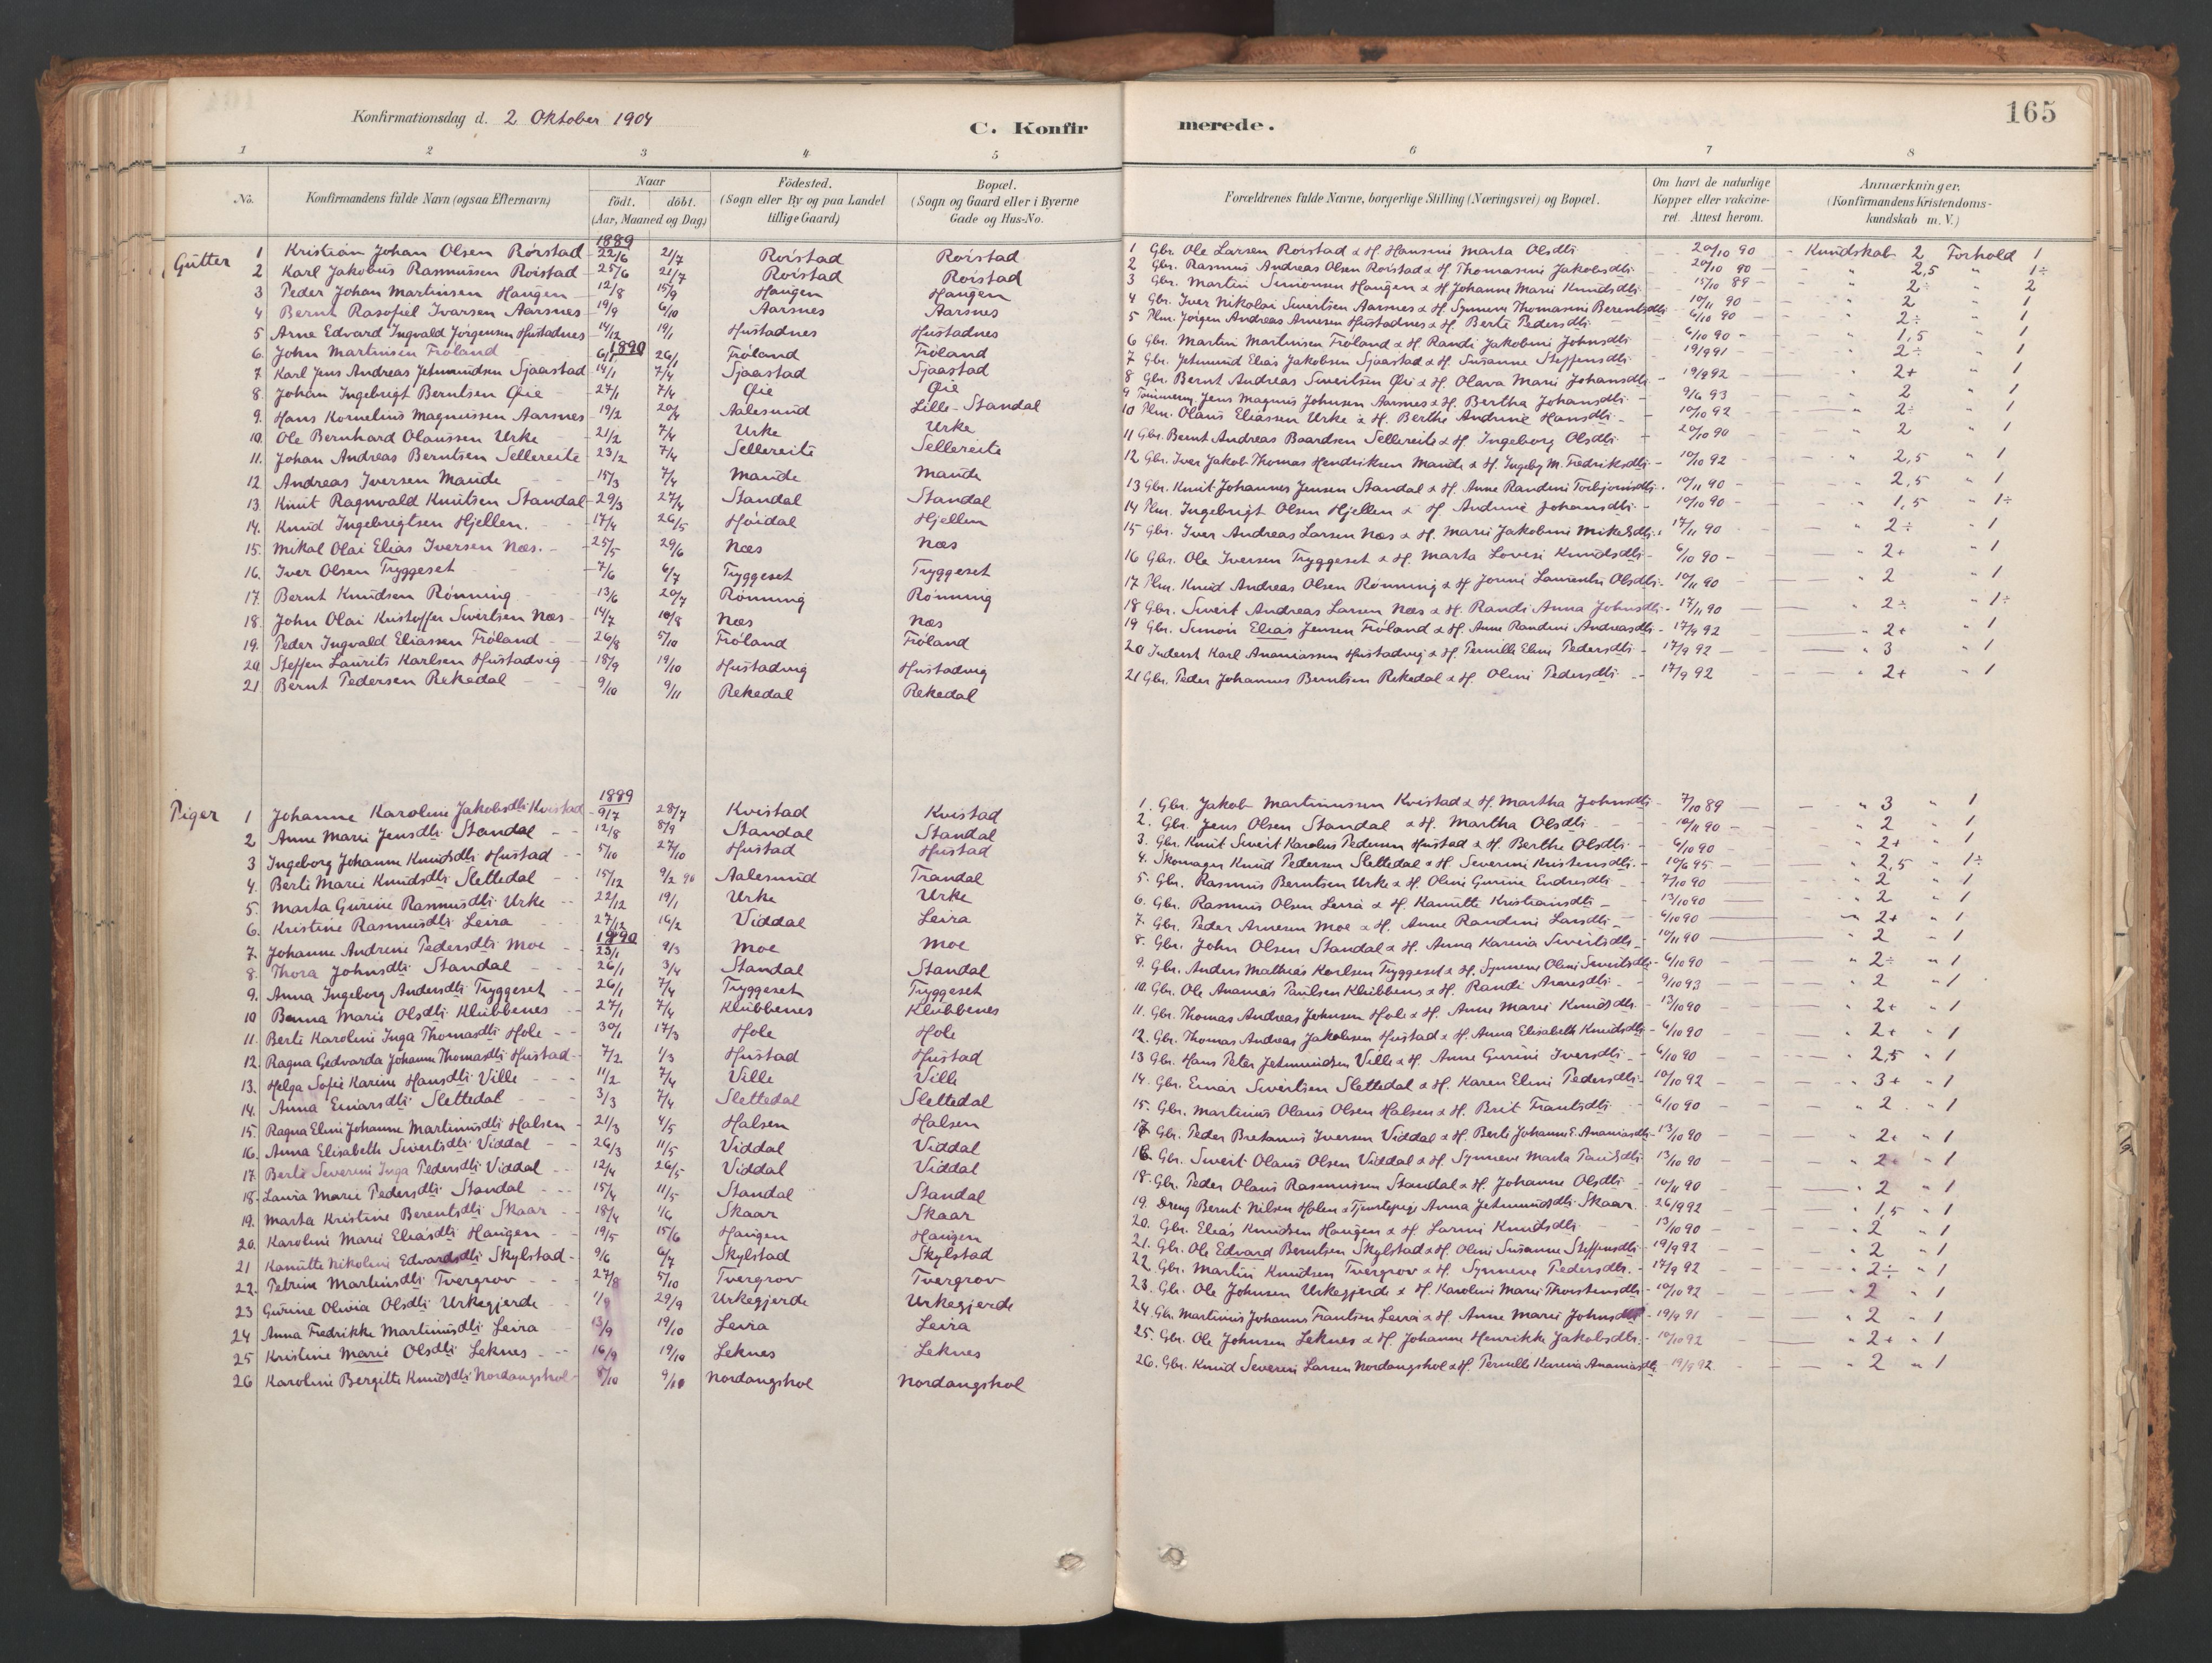 165
Konfirmationsdag d. 2 Oktober 1904
C. Konfirmerede.
1 2 3 4 5 6 7 8
No. Konfirmandens fulde Navn (ogsaa Efternavn) Naar födt. döbt. (Aar, Maaned og Dag) Födested. (Sogn eller By og paa Landet tillige Gaard) Bopæl. (Sogn og Gaard eller i Byerne Gade og Hus-No. Forældrenes fulde Navne, borgerlige Stilling (Næringsvei) og Bopæl. Om havt de naturlige Kopper eller vakcineret. Attest herom. Anmærkninger. (Konfirmandens Kristendomskundskab m. V.)
Gutter
1889
1 Kristian Johan Olsen Rörstad 22/6 21/7 Rörstad Rörstad 1 Gbr. Ole Larsen Rörstad & H. Hansine Marta Olsdtr 20/10 90 Kundskab 2 Forhold 1
2 Karl Jakobus Rasmussen Rörstad 25/6 21/7 Rörstad Rörstad 2 Gbr. Rasmus Andreas Olsen Rörstad & H. Thomasine Jakobsdtr 20/10 90 " 2,5 " 1÷
3 Peder Johan Martinsen Haugen 12/8 15/9 Haugen Haugen 3 Gbr. Martin Simonsen Haugen & H. Johanne Marie Knudsdtr 15/10 89 " 2÷ " 2
4 Bernt Rasofiel Ivarsen Aarsnes 19/9 6/10 Aarsnes Aarsnes 4 Gbr. Iver Nikolai Sivertsen Aarsnes & H. Synneve Thomasine Berentsdtr 10/11 90 " 2 " 1
5 Arne Edvard Ingvald Jörgensen Hustadnes 14/12 19/1 Hustadnes Hustadnes 5 Plm. Jörgen Andreas Arnesen Hustadnes & H. Berte Pedersdtr 6/10 90 " 2÷ " 1
1890
6. John Martinsen Fröland 6/1 26/1 Fröland Fröland 6 Gbr. Martin Martinsen Fröland & H. Randi Jakobine Johnsdtr 6/10 90 " 1,5 " 1
7. Karl Jens Andreas Jetmundsen Sjaastad 14/1 7/4 Sjaastad Sjaastad 7 Gbr. Jetmund Elias Jakobsen Sjaastad & H. Susanne Steffensdtr 19/9 91 " 2÷ " 1
8. Johan Ingebrigt Berntsen Øie 27/1 7/4 Øie Øie 8 Gbr. Bernt Andreas Sivertsen Øie & H. Olava Marie Johansdtr 19/9 92 " 2+ " 1
9. Hans Kornelius Magnussen Aarsnes 19/2 20/4 Aalesund Lille-Standal 9 Tömmerm. Jens Magnus Johnsen Aarsnes & H. Bertha Johansdtr 9/6 93 " 2 " 1
10. Ole Bernhard Olaussen Urke 21/2 7/4 Urke Urke 10 Plm. Olaus Eliassen Urke & H. Berthe Andrine Hansdtr 10/10 92 " 2÷ " 1
11. Johan Andreas Berntsen Sellereite 23/2 7/4 Sellereite Sellereite 11 Gbr. Bernt Andreas Baardsen Sellereite & H. Ingeborg Olsdtr 20/10 90 " 2 " 1
12. Andreas Iversen Maude 15/3 7/4 Maude Maude 12 Gbr. Iver Jakob Thomas Hendriksen Maude & H. Ingebg M. Fredriksdtr 10/10 92 " 2,5 " 1
13. Knut Ragnvald Knutsen Standal 29/3 27/4 Standal Standal 13 Gbr. Knut Johannes Jensen Standal & H. Anne Randine Torbjörnsdtr 10/11 90 " 2,5 " 1
14. Knud Ingebrigtsen Hjellen. 17/4 26/5 Höidal Hjellen 14 Plm. Ingebrigt Olsen Hjellen & H. Andrine Johansdtr 10/10 90 " 1,5 " 1÷
15. Mikal Olai Elias Iversen Næs. 25/5 29/6 Næs Næs 15 Gbr. Iver Andreas Larsen Næs & H. Marie Jakobine Mikelsdtr 17/11 90 " 2÷ " 1
16. Iver Olsen Tryggeset 7/6 6/7 Tryggeset Tryggeset 16 Gbr. Ole Iversen Tryggeset & H. Marta Lovise Knudsdtr 6/10 90 " 2+ " 1
17. Bernt Knudsen Rönning 13/6 20/7 Rönning Rönning 17 Plm. Knud Andreas Olsen Rönning & H. Jonne Laurentse Olsdtr 10/11 90 " 2 " 1
18. John Olai Kristoffer Sivertsen Næs 14/7 10/8 Næs Næs 18 Gbr. Sivert Andreas Larsen Næs & H. Randi Anna Johnsdtr 17/11 90 " 2÷ " 1÷
19. Peder Ingvald Eliassen Fröland 26/8 5/10 Fröland Fröland 19 Gbr. Simon Elias Jensen Fröland & H. Anne Randine Andreasdtr 17/9 92 " 2+ " 1
20. Steffen Laurits Karlsen Hustadvig 18/9 19/10 Hustadvig Hustadvig 20 Inderst Karl Ananiassen Hustadvig & H. Pernille Eline Pedersdtr 17/9 92 " 3 " 1
21 Bernt Pedersen Rekedal 9/10 9/11 Rekedal Rekedal 21 Gbr. Peder Johannes Berntsen Rekedal & H. Oline Pedersdtr 17/9 92 " 2+ " 1
Piger
1889
1 Johanne Karoline Jakobsdtr Kvistad 9/7 28/7 Kvistad Kvistad 1. Gbr. Jakob Martinussen Kvistad & H. Martha Johnsdtr 7/10 89 " 3 " 1
2 Anne Marie Jensdtr Standal 12/8 8/9 Standal Standal 2. Gbr. Jens Olsen Standal & H. Martha Olsdtr 10/11 90 " 2 " 1
3 Ingeborg Johanne Knudsdtr Hustad 5/10 27/10 Hustad Hustad 3. Gbr. Knut Sivert Karolus Pedersen Hustad & H. Berthe Olsdtr 6/10 90 " 2+ " 1
4. Berte Marie Knudsdtr Slettedal 15/12 9/2 90 Aalesund Trandal 4. Skomager Knud Pedersen Slettedal & H. Severine Kristensdtr 10/6 95 " 2,5 " 1÷
5. Marta Gurine Rasmusdtr Urke 22/12 19/1 Urke Urke 5. Gbr. Rasmus Berntsen Urke & H. Oline Gurine Endresdtr 7/10 90 " 2 " 1
6. Kristine Rasmusdtr Leira 27/12 16/2 Viddal Leira 6. Gbr. Rasmus Olsen Leira & H. Kanutte Kristiansdtr 13/10 90 " 2 " 1
1890
7. Johanne Andrine Pedersdtr Moe 23/1 9/3 Moe Moe 7. Gbr. Peder Arnesen Moe & H. Anne Randine Larsdtr 6/10 90 " 2+ " 1
8. Thora Johnsdtr Standal 26/1 3/4 Standal Standal 8. Gbr. John Olsen Standal & H. Anna Karina Sivertsdtr 10/11 90 " 2 " 1
9. Anna Ingeborg Andersdtr Tryggeset 26/1 7/4 Tryggeset Tryggeset 9. Gbr. Anders Mathias Karlsen Tryggeset & H. Synneve Oline Sivertsdtr 6/10 90 " 2÷ " 1
10 Benna Marie Olsdtr Klubbenes 27/1 7/4 Klubbenes Klubbenes 10. Gbr. Ole Ananias Paulsen Klubbenes & H. Randi Arnesdtr 9/10 93 " 2 " 1
11. Berte Karoline Inga Thomasdtr Hole 30/1 17/3 Hole Hole 11. Gbr. Thomas Andreas Johnsen Hole & H. Anne Marie Knudsdtr 13/10 90 " 2+ " 1
12. Ragna Gedvarda Johanne Thomasdtr Hustad 7/2 1/3 Hustad Hustad 12. Gbr. Thomas Andreas Jakobsen Hustad & H. Anna Elisabeth Knudsdtr 6/10 90 " 2+ " 1
13. Helga Sofie Karine Hansdtr Ville 11/2 7/4 Ville Ville 13 Gbr. Hans Peter Jetmundsen Ville & H. Anne Gurine Iversdtr 6/10 90 " 2,5 " 1
14. Anna Einarsdtr Slettedal 3/3 7/4 Slettedal Slettedal 14. Gbr. Einar Sivertsen Slettedal & H. Karen Eline Pedersdtr 10/10 92 " 3+ " 1
15. Ragna Eline Johanne Martinusdtr Halsen 21/3 4/5 Halsen Halsen 15. Gbr. Martinus Olaus Olsen Halsen & H. Brit Frantsdtr 6/10 90 " 2 " 1
16. Anna Elisabeth Sivertsdtr Viddal 26/3 11/5 Viddal Viddal 17 Gbr. Peder Bretanus Iversen Viddal & H. Berte Johanne E. Ananiasdtr 13/10 90 " 2+ " 1
17. Berte Severine Inga Pedersdtr Viddal 12/4 26/5 Viddal Viddal 16. Gbr. Sivert Olaus Olsen Viddal & H. Synneve Marta Paulsdtr 13/10 90 " 2+ " 1
18. Laura Marie Pedersdtr Standal 15/4 11/5 Standal Standal 18. Gbr. Peder Olaus Rasmussen Standal & H. Johanne Olsdtr 10/11 90 " 2 " 1
19. Marta Kristine Berentsdtr Skaar 18/4 1/6 Skaar Skaar 19. Dreng Bernt Nilsen Holen & Tjenstepig. Anna Jetmundsdtr Skaar 26/9 92 " 1,5 " 1
20. Karoline Marie Eliasdtr Haugen 19/5 15/6 Haugen Haugen 20. Gbr. Elias Knudsen Haugen & H. Larine Knudsdtr 13/10 90 " 2 " 1
21 Kanutte Nikoline Edvardsdtr Skylstad 9/6 6/7 Skylstad Skylstad 21. Gbr. Ole Edvard Berntsen Skylstad & H. Oline Susanne Steffensdtr 19/9 92 " 2 " 1
22. Petrine Martinsdtr Tvergrov 27/8 5/10 Tvergrov Tvergrov 22. Gbr. Martin Knudsen Tvergrov & H. Synneve Pedersdtr 17/9 92 " 2÷ " 1
23 Gurine Olivia Olsdtr Urkegjerde 1/9 29/9 Urkegjerde Urkegjerde 23. Gbr. Ole Johnsen Urkegjerde & H. Karoline Marie Thorstensdtr 10/10 92 " 2 " 1
24 Anna Fredrikke Martinusdtr Leira 13/9 19/10 Leira Leira 24 Gbr. Martinus Johannes Frantsen Leira & H. Anne Marie Johnsdtr 19/9 91 " 2 " 1
25 Kristine Marie Olsdtr Leknes 16/9 19/10 Leknes Leknes 25. Gbr. Ole Johnsen Leknes & H. Johanne Henrikke Jakobsdtr 10/10 92 " 2+ " 1
26 Karoline Bergitte Knudsdtr Nordangshol 8/10 9/10 Nordangshol Nordangshol 26. Gbr. Knud Severin Larsen Nordangshol & H. Pernille Karina Ananiasdtr 19/9 92 " 2 " 1